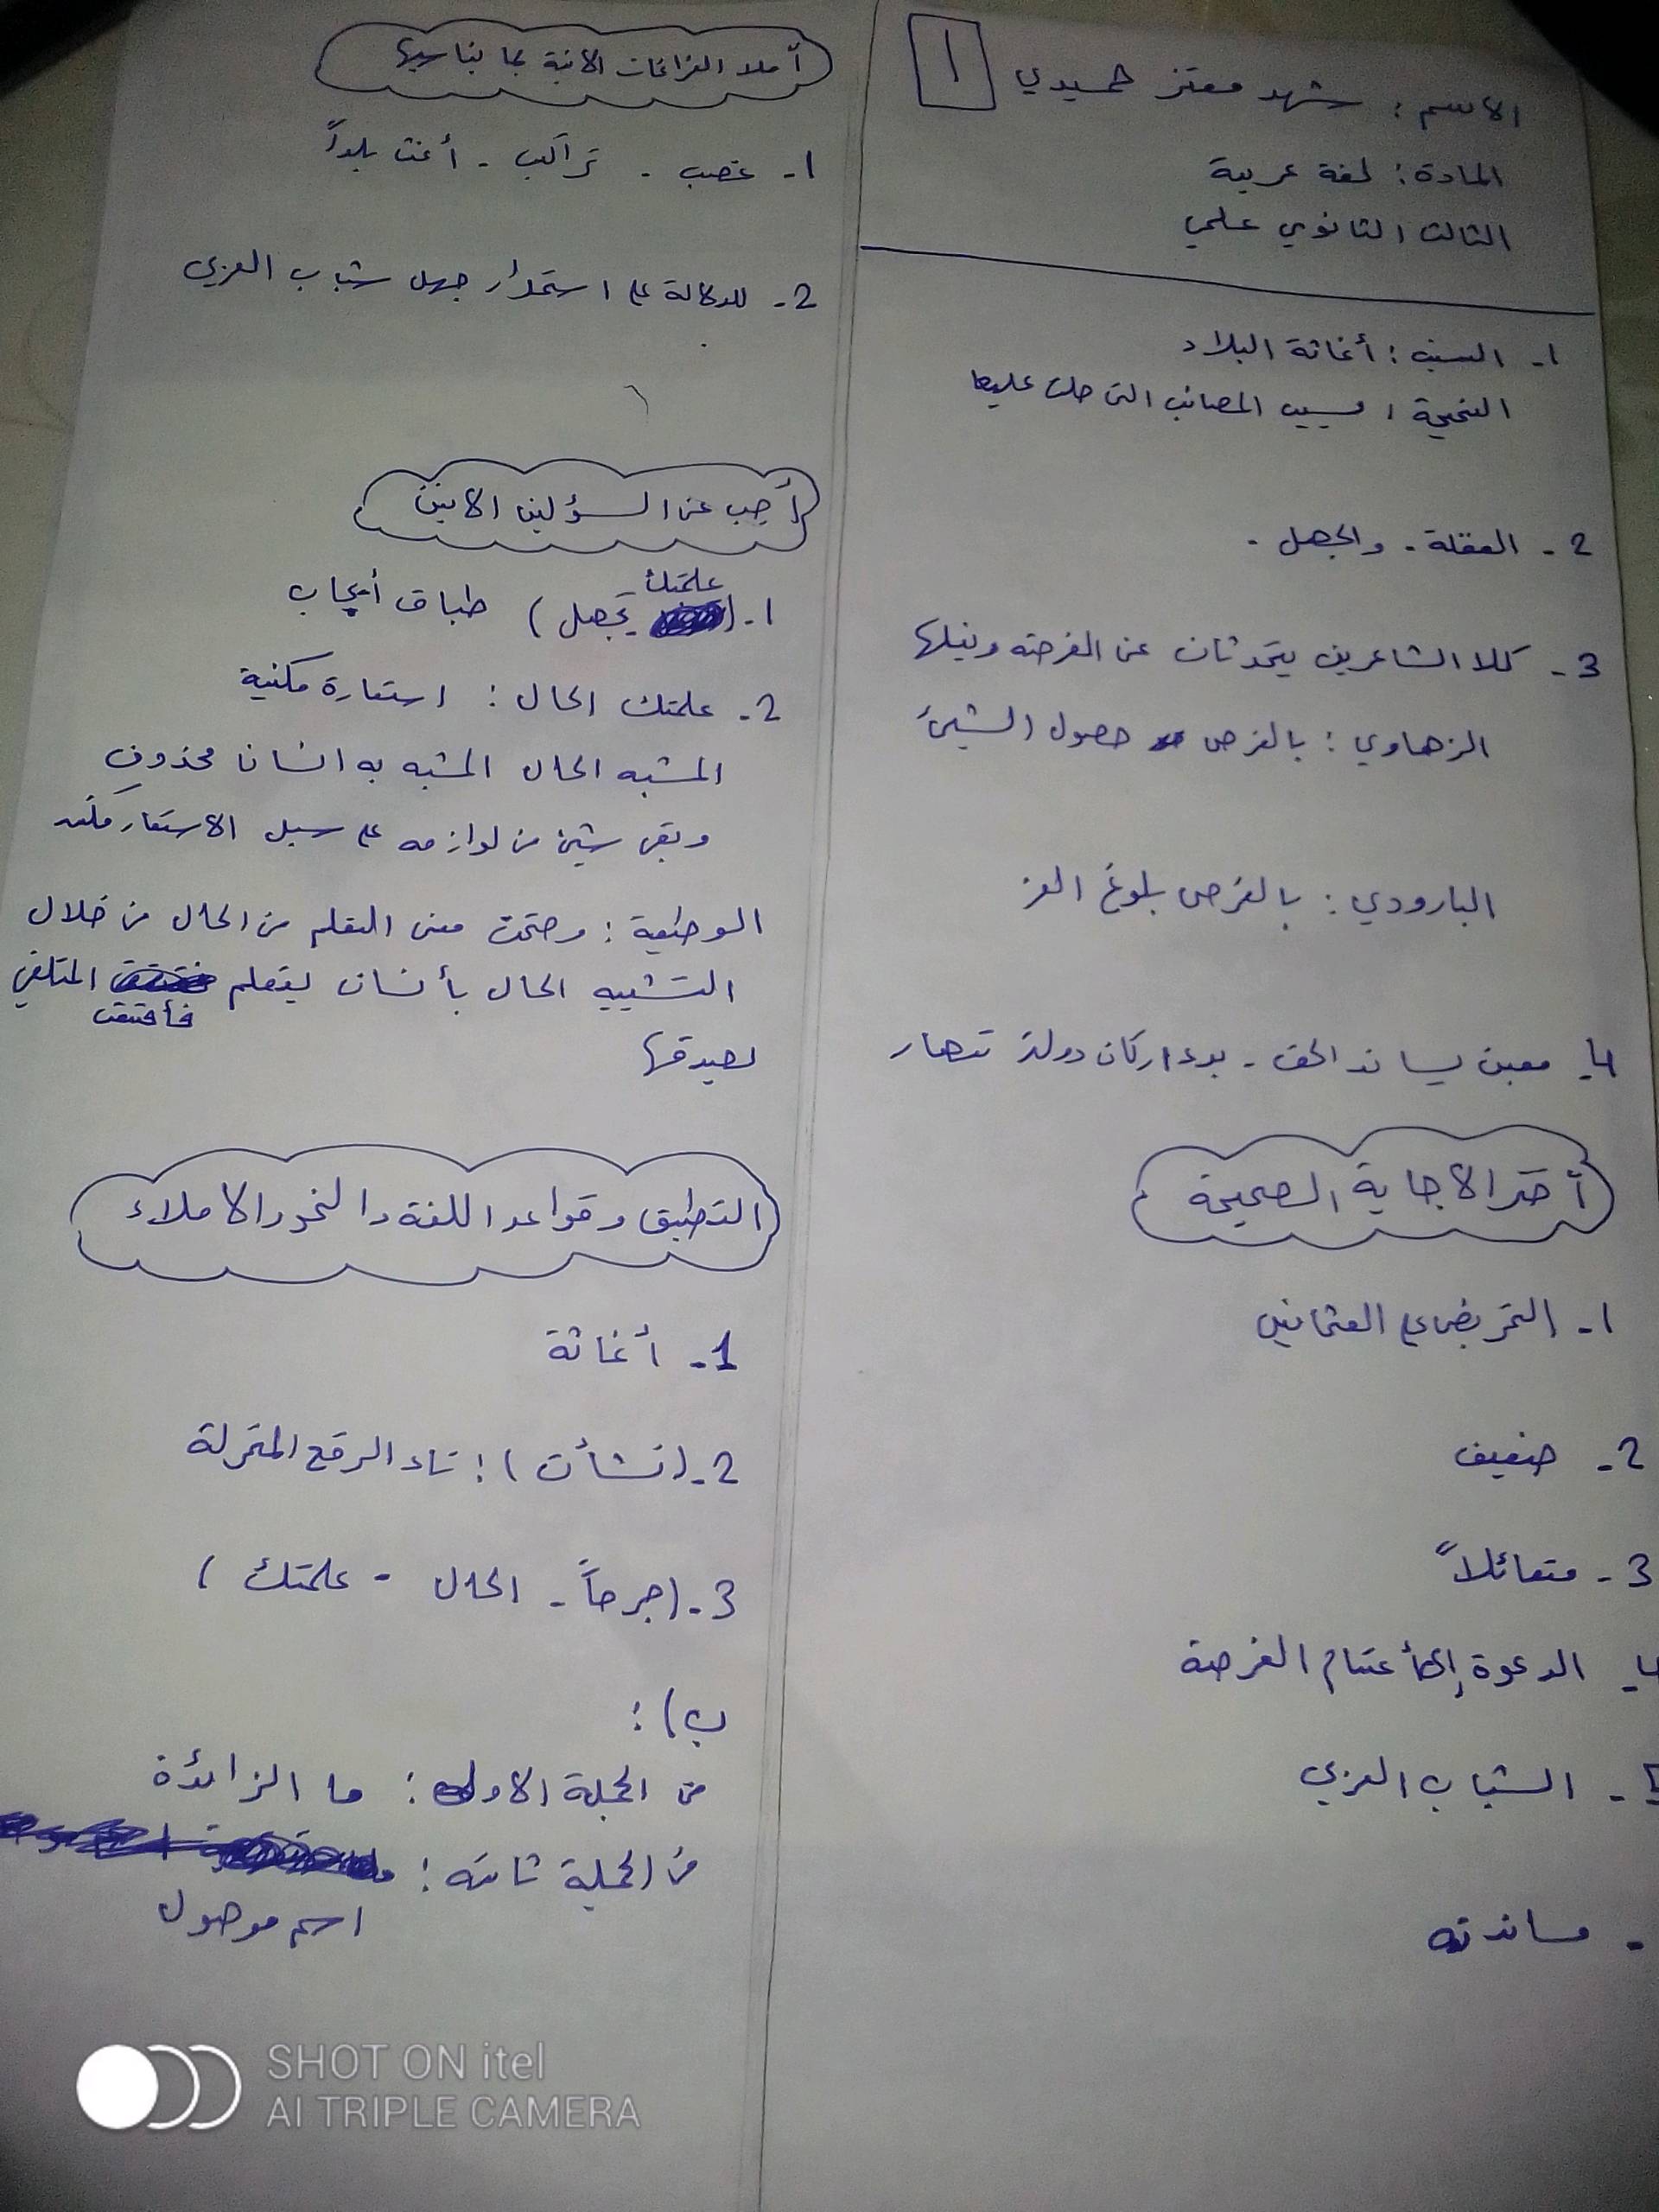 الاسم : شهد معتز حميدي
1
المادة : لغة عربية
الثالث الثانوي علمي
1- السبب : أغاثة البلاد
النتيجة : بسبب المصائب التي حلت عليها
2- الغفلة - والجهل -
3- كلا الشاعرين يتحدثان عن الفرصة ونيلها
الزهاوي : بالفرص حصول الشيئ
البارودي : بالفرص بلوغ العز
4- معين يساند الحق - بدء اركان دولة تنهار
أختر الاجابة الصحيحة
1- التحريض على العثمانيين
2- ضعيف
3- متفائلاً
4- الدعوة إلى أغتنام الفرصة
5- الشباب العربي
- مساندته
أملا الفراغات الاتية بما يناسبها
1- غصب - تراكب - أغث بلداً
2- للدلالة على استمرار جهل شباب العربي
أجب عن السؤلين الاتين
1- (علمتك تجهل) طباق أيجاب
2- علمتك الحال : استعارة مكنية
المشبه الحال المشبه به انسان محذوف
وبقي شيئ من لوازمه على سبيل الاستعار مكنية
الوظيفة : وضحت معنى التعلم من الحال من خلال
التشبيه الحال بأنسان يتعلم فأقتنعت المتلقي
بصدقها
التطبيق وقواعد اللغة والنحو والاملاء
1- أغاثة
2- (نشأت) : تاء الرفع المتحركة
3- (جرحاً - الحال - علمتك)
ب) :
من الجملة الاولى : ما الزائدة
من الجملة ثانية :
اسم موصول
SHOT ON itel
AI TRIPLE CAMERA